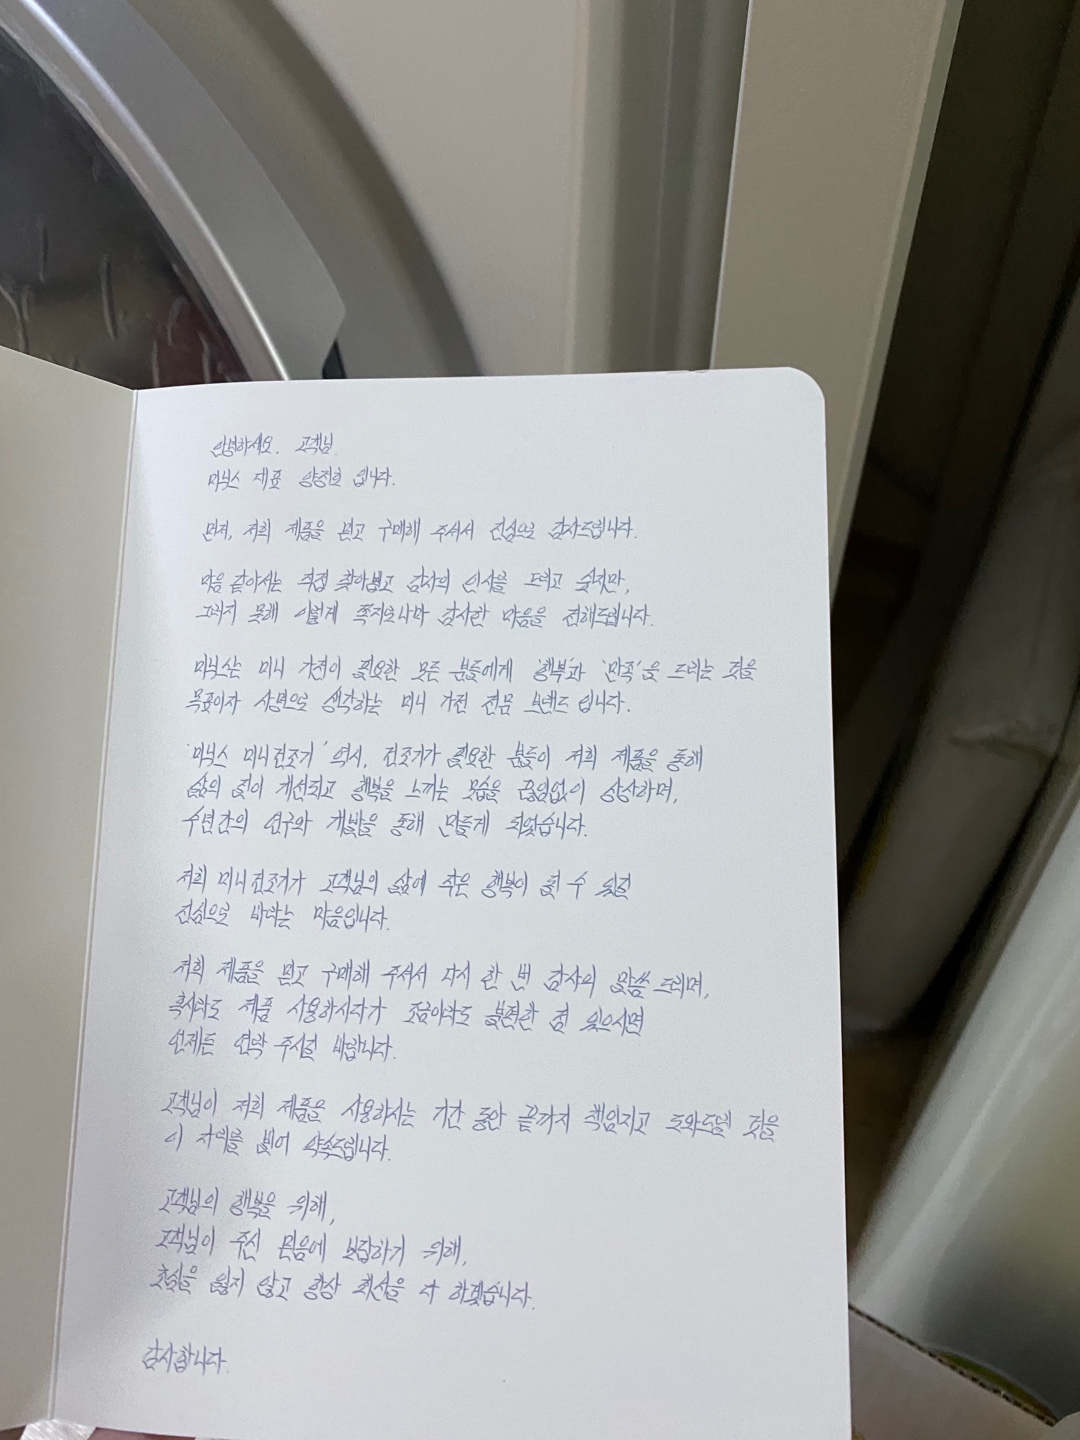 안녕하세요. 고객님.
미닉스 대표 양정호 입니다.
먼저, 저희 제품을 믿고 구매해 주셔서 진심으로 감사드립니다.
마음 같아서는 직접 찾아뵙고 감사의 인사를 드리고 싶지만,
그러지 못해 이렇게 쪽지로나마 감사한 마음을 전해드립니다.
미닉스는 미니 가전이 필요한 모든 분들에게 '행복'과 '만족'을 드리는 것을
목표이자 사명으로 생각하는 미니 가전 전문 브랜드 입니다.
'미닉스 미니건조기' 역시, 건조기가 필요한 분들이 저희 제품을 통해
삶의 질이 개선되고 행복을 느끼는 모습을 끊임없이 상상하며,
수년간의 연구와 개발을 통해 만들게 되었습니다.
저희 미니건조기가 고객님의 삶에 작은 행복이 될 수 있길
진심으로 바라는 마음입니다.
저희 제품을 믿고 구매해 주셔서 다시 한 번 감사의 말씀 드리며,
혹시라도 제품 사용하시다가 조금이라도 불편한 점 있으시면
언제든 연락 주시길 바랍니다.
고객님이 저희 제품을 사용하시는 기간 동안 끝까지 책임지고 도와드릴 것을
이 자리를 빌어 약속드립니다.
고객님의 행복을 위해,
고객님이 주신 믿음에 보답하기 위해,
초심을 잃지 않고 항상 최선을 다 하겠습니다.
감사합니다.